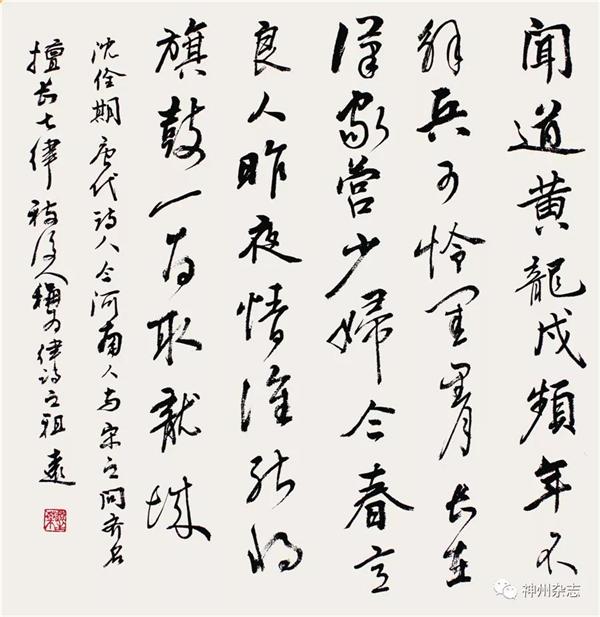 聞道黄龍戍頻年不
解兵可怜閨里月長在
漢家營少婦今春意
良人昨夜情誰能將
旗鼓一為取龍城
沈佺期唐代詩人今河南人与宋之問齊名
擅長七律被後人稱為律詩之祖遠
神州杂志